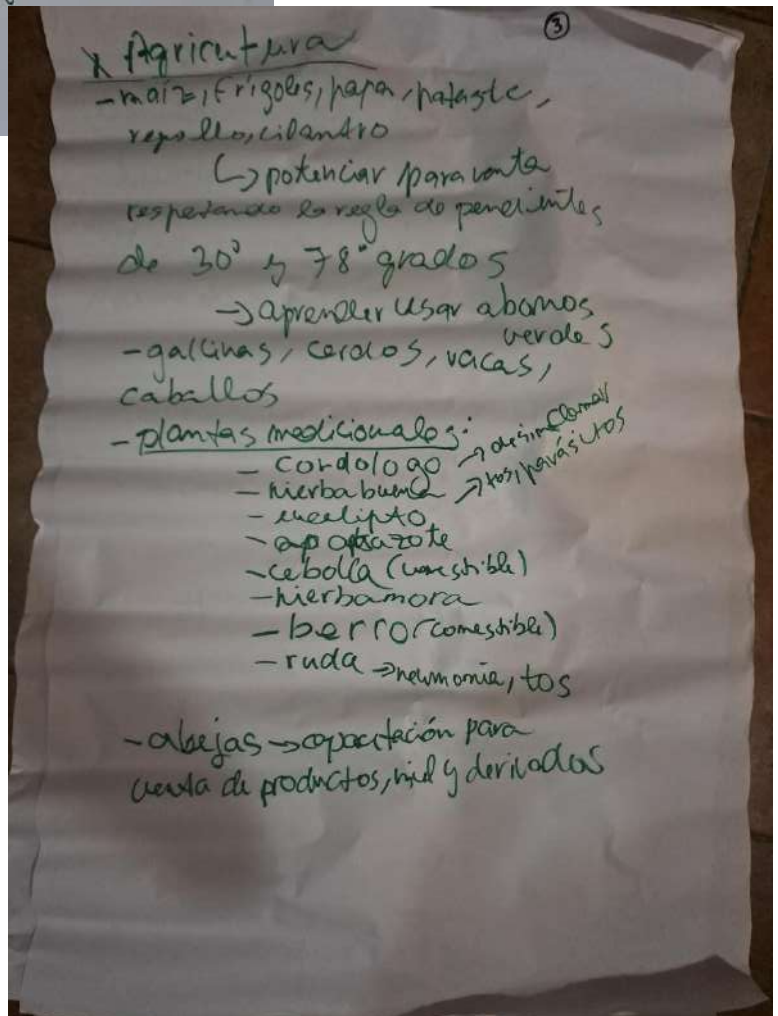 ③
x Agricutura
- maíz, frígoles, papa, pataste,
repollo, cilandro
↳ potenciar para venta
respetando la regla de pendientes
de 30° y 78° grados
→ aprender usar abonos
verdes
- gallinas, cerdos, vacas,
caballos
- plantas medicionales:
- cordologo → desinflamar
- hierbabuena → tos, parásitos
- eucalipto
- apotsazote
- cebolla (comestible)
- hierbamora
- berro (comestible)
- ruda → neumonia, tos
- abejas → capacitación para
venta de productos, miel y derivados